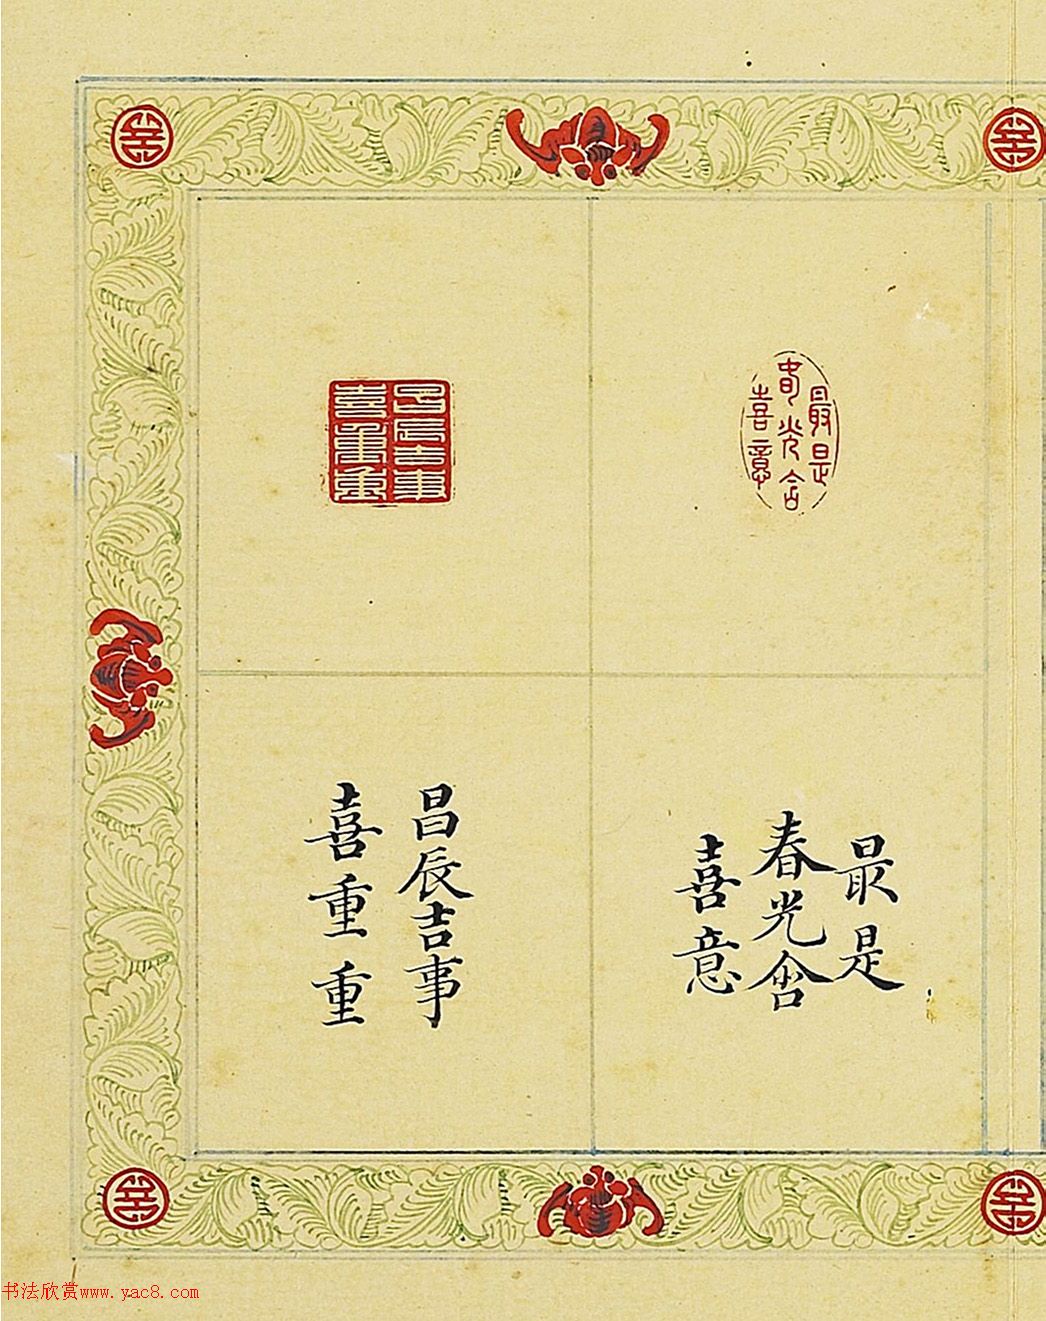 最是
春光含
喜意
昌辰吉事
喜重重
最是
春光含
喜意
昌辰吉事
喜重重
书法欣赏www.yac8.com